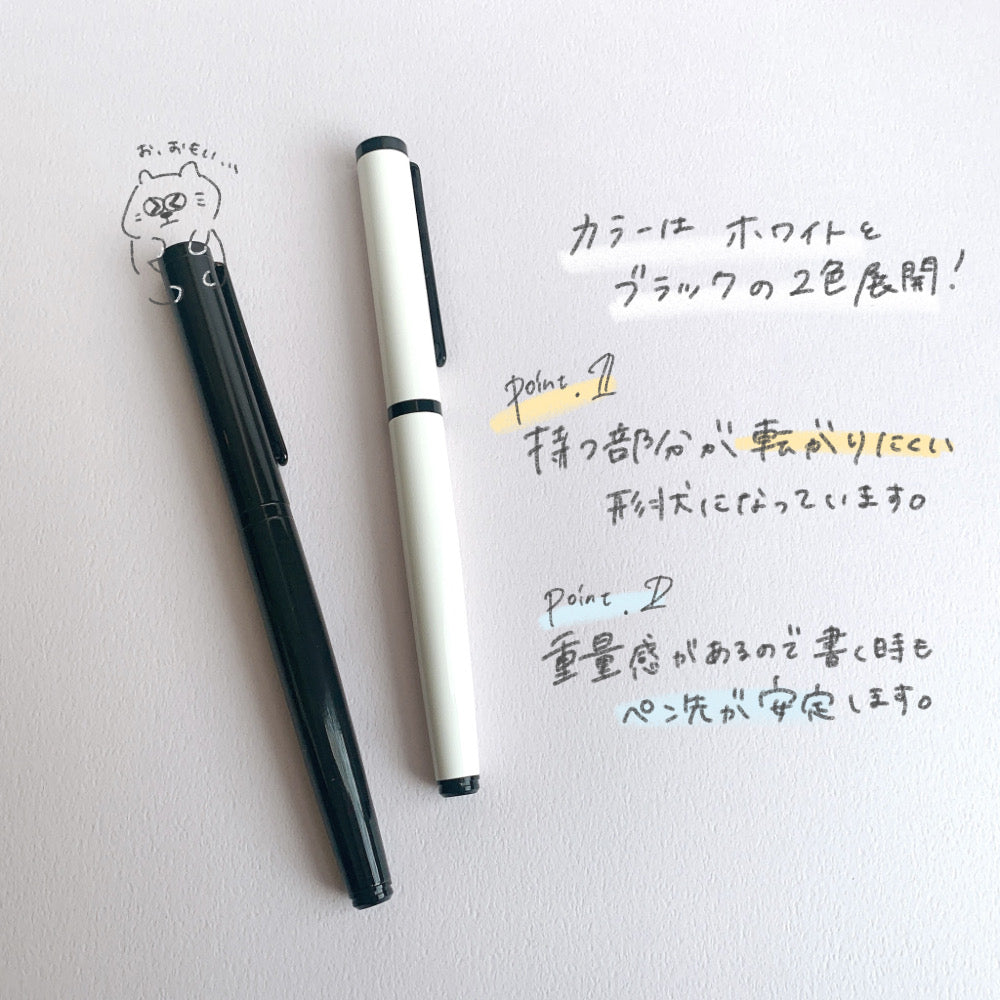 お、おもい…
カラーは ホワイトと
ブラックの2色展開!
point.1
持つ部分が転がりにくい
形状になっています。
point.2
重量感があるので書く時も
ペン先が安定します。